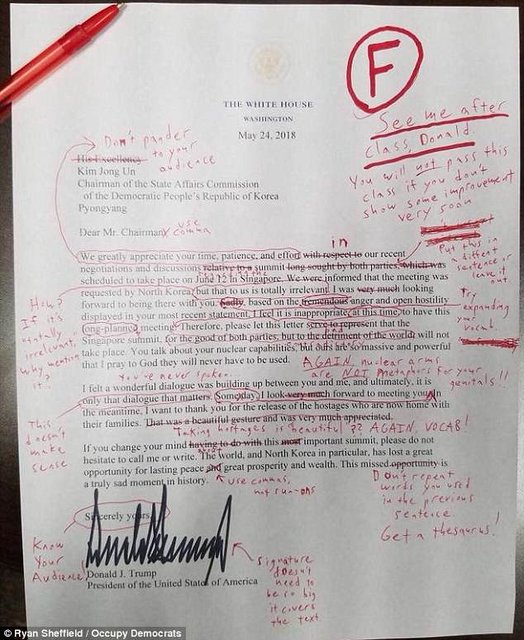 F
See me after
class, Donald.
You will not pass this
class if you don't
show some improvement
very soon
THE WHITE HOUSE
WASHINGTON
May 24, 2018
Don't pander
to your
audience
His Excellency
Kim Jong Un
Chairman of the State Affairs Commission
of the Democratic People's Republic of Korea
Pyongyang
Dear Mr. Chairman
use
comma
in
We greatly appreciate your time, patience, and effort with respect to our recent
negotiations and discussions relative to a summit long sought by both parties, which was
scheduled to take on place on June 12 in Singapore. We were informed that the meeting was
requested by North Korea, but that to us is totally irrelevant. I was very much looking
forward to being there with you. Sadly, based on the tremendous anger and open hostility
displayed in your most recent statement, I feel it is inappropriate, at this time, to have this
long-planned meeting. Therefore, please let this letter serve to represent that the
Singapore summit, for the good of both parties, but to the detriment of the world, will not
take place. You talk about your nuclear capabilities, but ours are so massive and powerful
that I pray to God they will never have to be used.
Put this in
different
sentence or
leave it
out
Try
expanding
your
vocab
How?
If it's
totally
irrelevant,
Why mention
it...
AGAIN, nuclear arms
are NOT metaphors for your
genitals!!
You've never spoken
I felt a wonderful dialogue was building up between you and me, and ultimately, it is
only that dialogue that matters. Someday, I look very much forward to meeting you. In
the meantime, I want to thank you for the release of the hostages who are now home with
their families. That was a beautiful gesture and was very much appreciated.
This
doesn't
make
sense
Taking hostages is beautiful?? AGAIN, VOCAB!
If you change your mind having to do with this most important summit, please do not
about
hesitate to call me or write. The world, and North Korea in particular, has lost a great
opportunity for lasting peace and great prosperity and wealth. This missed opportunity is
a truly sad moment in history.
Use commas,
not run-ons
Don't repeat
words you used
in the previous
sentence.
Get a thesaurus!
Sincerely yours,
Know
Your
Audience!
Donald J. Trump
President of the United States of America
Signature
doesn't
need to
be so big
it covers
the text
© Ryan Sheffield / Occupy Democrats